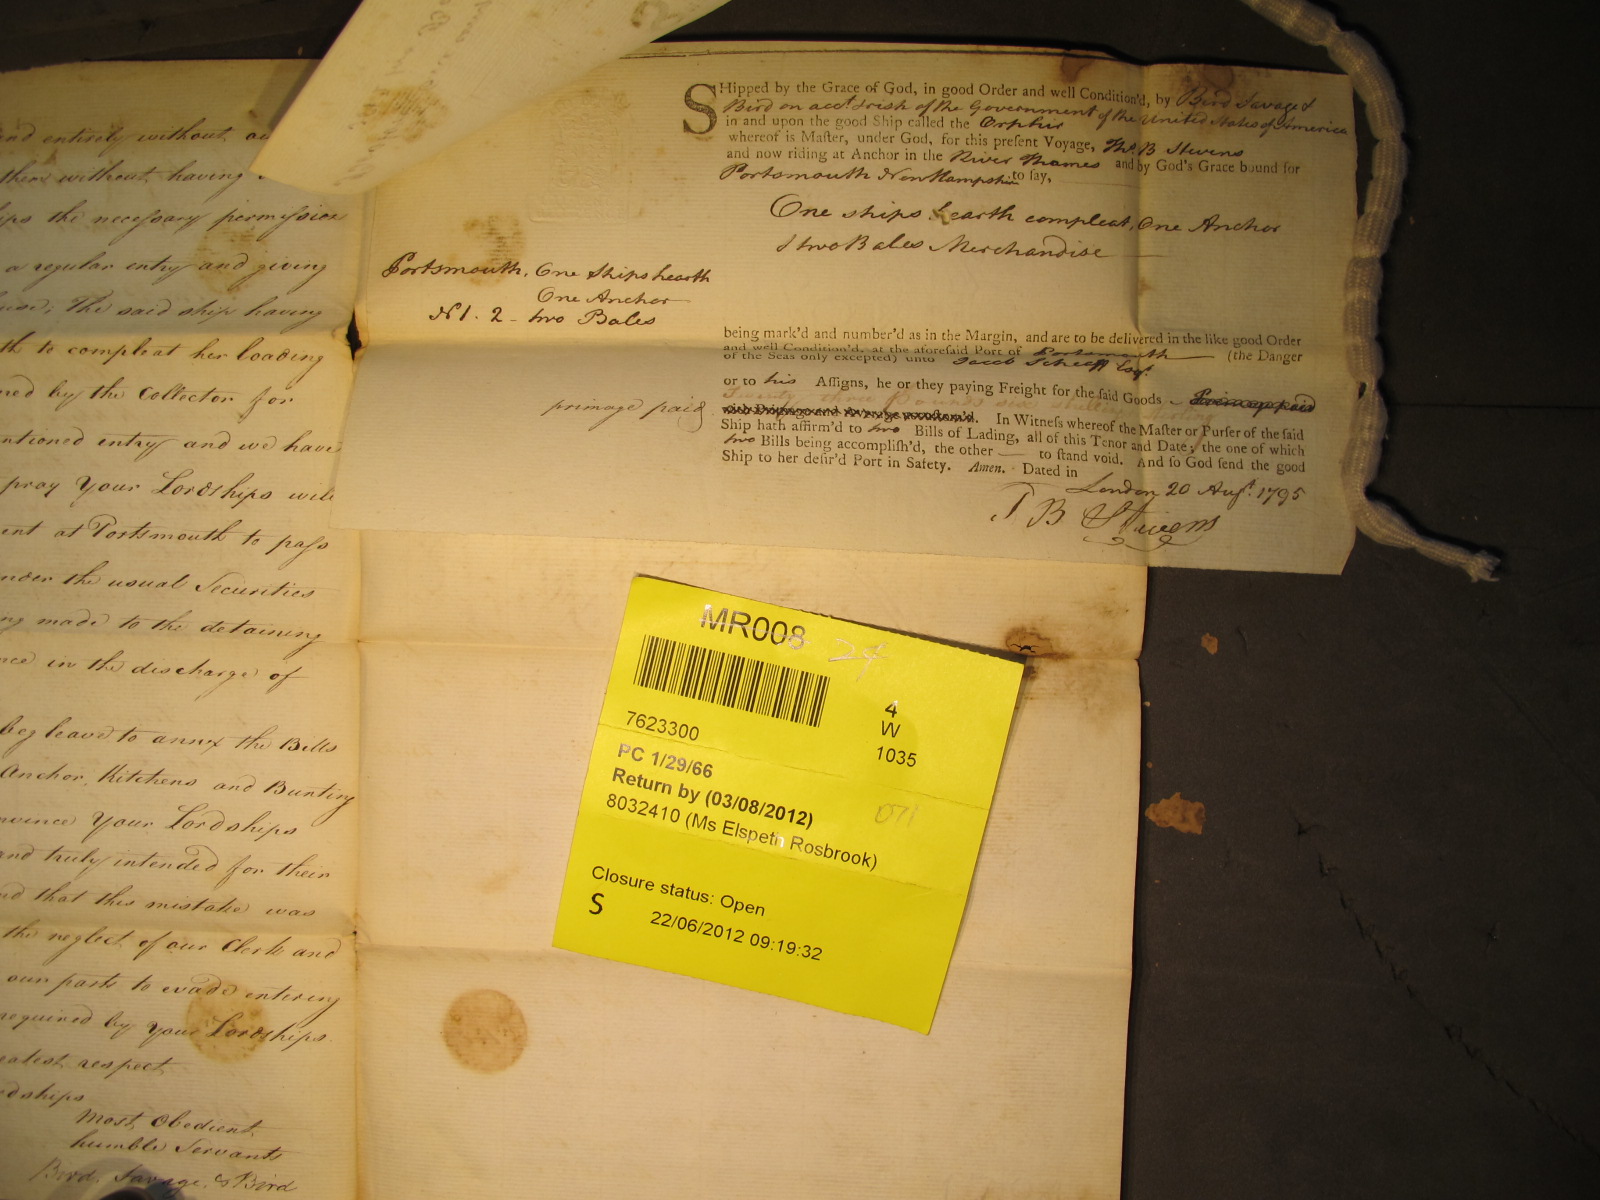 and entirely without
them without having
ships the necessary permission
a regular entry and giving
The said ship having
to compleat her loading
by the Collector for
entry and we have
pray Your Lordships will
at Portsmouth to pass
under the usual Securities
made to the detaining
in the discharge of
beg leave to annex the Bills
Anchor, Kitchens and Bunting
Your Lordships
and truly intended for their
and that this mistake was
the neglect of our Clerk and
our parts to evade entering
required by your Lordships.
respect
Most Obedient
humble Servants
Bird, Savage & Bird
SHipped by the Grace of God, in good Order and well Condition'd, by Bird Savage &
Bird on acct. & risk of the Government of the United States of America
in and upon the good Ship called the Orpheus
whereof is Master, under God, for this present Voyage, Ths. B Stevens
and now riding at Anchor in the River Thames and by God's Grace bound for
Portsmouth New Hampshire to say,
One ships hearth compleat, One Anchor
& two Bales Merchandise
Portsmouth. One Ships hearth
One Anchor
No 1. 2 - two Bales
being mark'd and number'd as in the Margin, and are to be delivered in the like good Order
and well Condition'd, at the aforesaid Port of Portsmouth (the Danger
of the Seas only excepted) unto Jacob Scheaff Esqr.
or to his Assigns, he or they paying Freight for the said Goods
primage paid
In Witness whereof the Master or Purser of the said
Ship hath affirm'd to two Bills of Lading, all of this Tenor and Date; the one of which
two Bills being accomplish'd, the other to stand void. And so God send the good
Ship to her desir'd Port in Safety. Amen. Dated in
London 20 Augt. 1795
T B Stevens
MR008 24
4
W
7623300
1035
PC 1/29/66
Return by (03/08/2012)
071
8032410 (Ms Elspeth Rosbrook)
Closure status: Open
S
22/06/2012 09:19:32